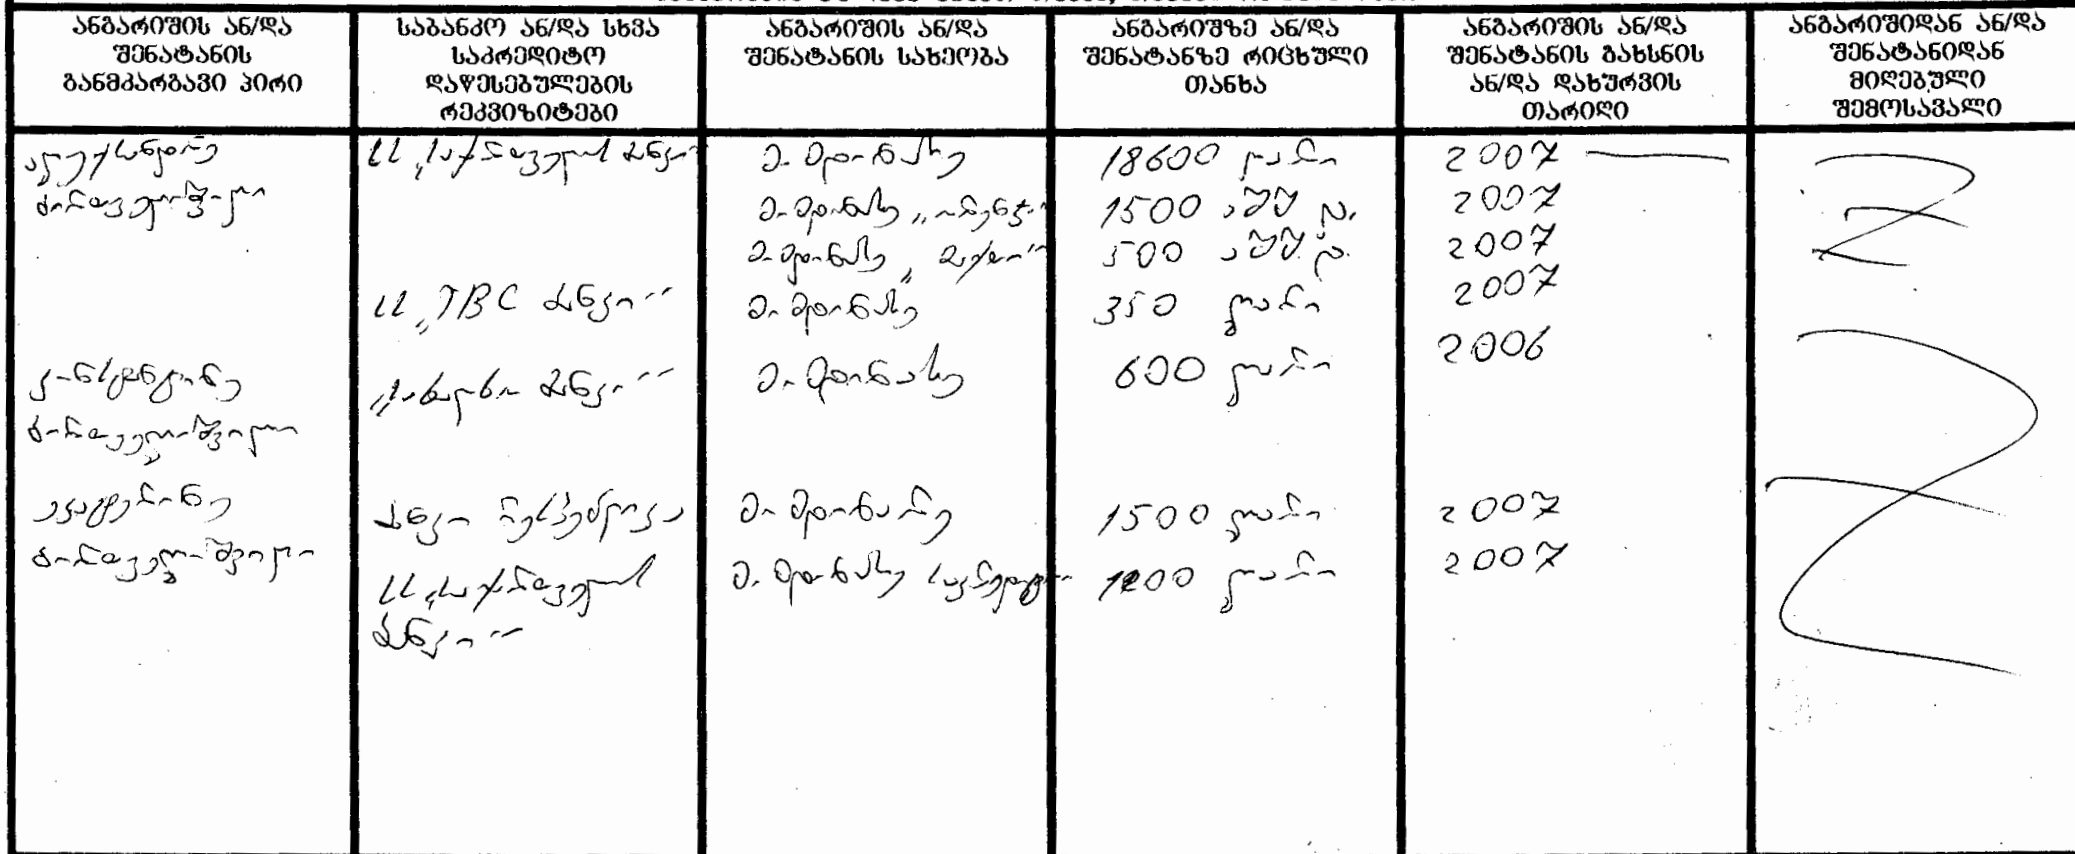 ანგარიშის ან/და
შენატანის
განმკარგავი პირი
საბანკო ან/და სხვა
საკრედიტო
დაწესებულების
რეკვიზიტები
ანგარიშის ან/და
შენატანის სახეობა
ანგარიშზე ან/და
შენატანზე რიცხული
თანხა
ანგარიშის ან/და
შენატანის გახსნის
ან/და დახურვის
თარიღი
ანგარიშიდან ან/და
შენატანიდან
მიღებული
შემოსავალი
ალექსანდრე სს „საქართველოს ბანკი“ მიმდინარე 18600 ლარი 2007
მიმდინარე 1500 აშშ დ. 2007
მიმდინარე 500 აშშ დ. 2007
სს „TBC ბანკი“ მიმდინარე 350 ლარი 2007
კონსტანტინე „სახალხო ბანკი“ მიმდინარე 600 ლარი 2006
ეკატერინე ბანკი რესპუბლიკა მიმდინარე 1500 ლარი 2007
სს „საქართველოს მიმდინარე საკრედიტო ლარი 2007
ბანკი“